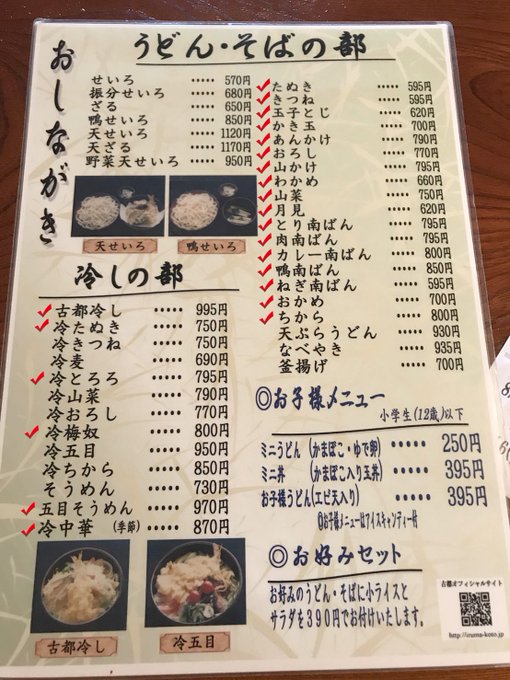 おしながき
うどん・そばの部
せいろ ・・・・・ 570円
振分せいろ ・・・・・ 680円
ざる ・・・・・ 650円
鴨せいろ ・・・・・ 850円
天せいろ ・・・・・ 1120円
天ざる ・・・・・ 1170円
野菜天せいろ ・・・・・ 950円
天せいろ
鴨せいろ
たぬき ・・・・・ 595円
きつね ・・・・・ 595円
玉子とじ ・・・・・ 620円
かき玉 ・・・・・ 700円
あんかけ ・・・・・ 790円
おろし ・・・・・ 770円
山かけ ・・・・・ 795円
わかめ ・・・・・ 660円
山菜 ・・・・・ 780円
月見 ・・・・・ 620円
とり南ばん ・・・・・ 795円
肉南ばん ・・・・・ 795円
カレー南ばん ・・・・・ 800円
鴨南ばん ・・・・・ 850円
ねぎ南ばん ・・・・・ 595円
おかめ ・・・・・ 700円
ちから ・・・・・ 800円
天ぷらうどん ・・・・・ 930円
なべやき ・・・・・ 935円
釜揚げ ・・・・・ 700円
冷しの部
古都冷し ・・・・・ 995円
冷たぬき ・・・・・ 750円
冷きつね ・・・・・ 750円
冷麦 ・・・・・ 690円
冷とろろ ・・・・・ 795円
冷山菜 ・・・・・ 790円
冷おろし ・・・・・ 770円
冷梅奴 ・・・・・ 800円
冷五目 ・・・・・ 950円
冷ちから ・・・・・ 850円
そうめん ・・・・・ 730円
五目そうめん ・・・・・ 970円
冷中華 (季節) ・・・・・ 870円
古都冷し
冷五目
◎お子様メニュー
小学生(12歳)以下
ミニうどん (かまぼこ・ゆで卵) ・・・・・ 250円
ミニ丼 (かまぼこ入り玉丼) ・・・・・ 395円
お子様うどん(エビ天入り) ・・・・・ 395円
◎お子様メニューはアイスキャンディー付
◎お好みセット
お好みのうどん・そばに小ライスと
サラダを390円でお付けいたします。
古都オフィシャルサイト
http://iruma-koto.jp